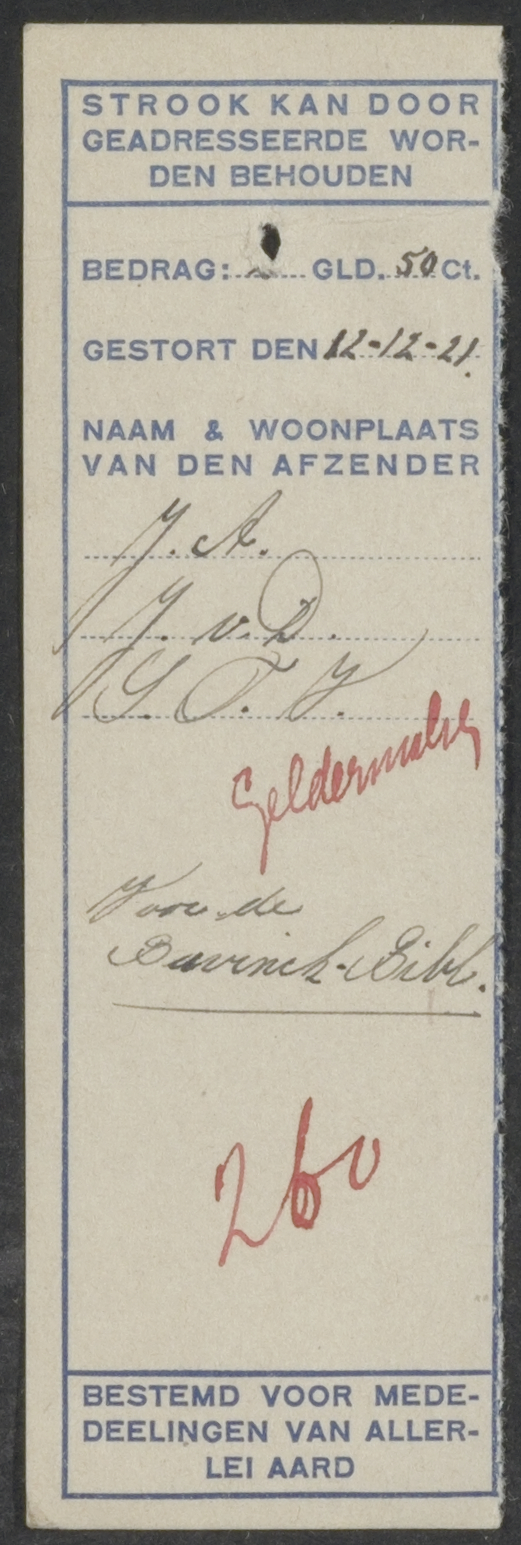 STROOK KAN DOOR
GEADRESSEERDE WOR-
DEN BEHOUDEN
BEDRAG: GLD. 50 Ct.
GESTORT DEN 12-12-21.
NAAM & WOONPLAATS
VAN DEN AFZENDER
J. A.
J. v. D.
G. T. J.
Voor de
Bavinck-Bibl.
260
BESTEMD VOOR MEDE-
DEELINGEN VAN ALLER-
LEI AARD